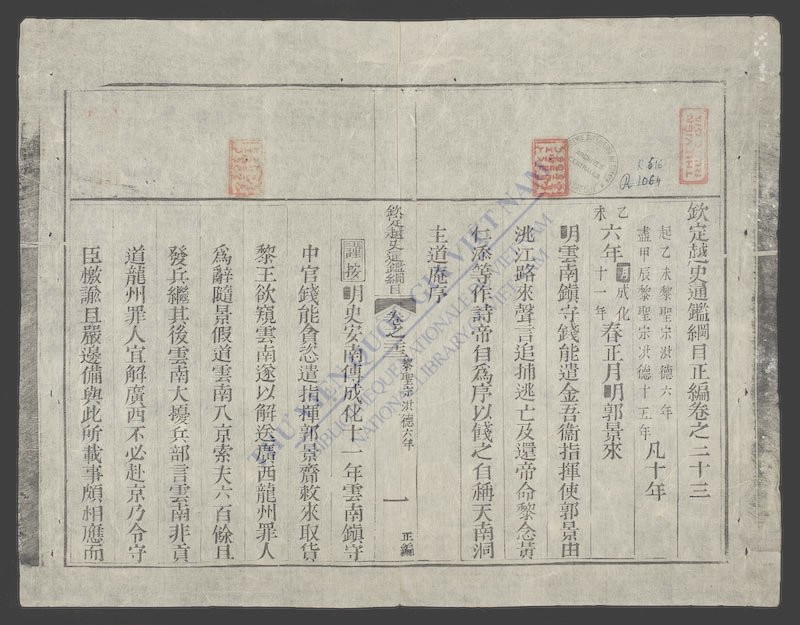 THƯ VIỆN
R 516
R 1064
欽定越史通鑑綱目正編卷之二十三
起乙未黎聖宗洪德六年
盡甲辰黎聖宗洪德十五年
凡十年
乙未
六年
明成化
十一年
春正月明郭景來
明雲南鎮守錢能遣金吾衞指揮使郭景由
洮江路來聲言追捕逃亡及還帝命黎念黃
仁添等作詩帝自爲序以餞之自稱天南洞
主道庵序
欽定越史通鑑綱目
卷之二十三
黎聖宗洪德六年
一
正編
謹按明史安南傳成化十一年雲南鎮守
中官錢能貪恣遣指揮郭景齎敕來取貨
黎王欲窺雲南遂以解送廣西龍州罪人
爲辭隨景假道雲南入京索夫六百餘且
發兵繼其後雲南大擾兵部言雲南非貢
道龍州罪人宜解廣西不必赴京乃令守
臣檄諭且嚴邊備與此所載事頗相應而
THƯ VIỆN QUỐC GIA VIỆT NAM
BIBLIOTHÈQUE NATIONALE DU VIETNAM
NATIONAL LIBRARY OF VIETNAM